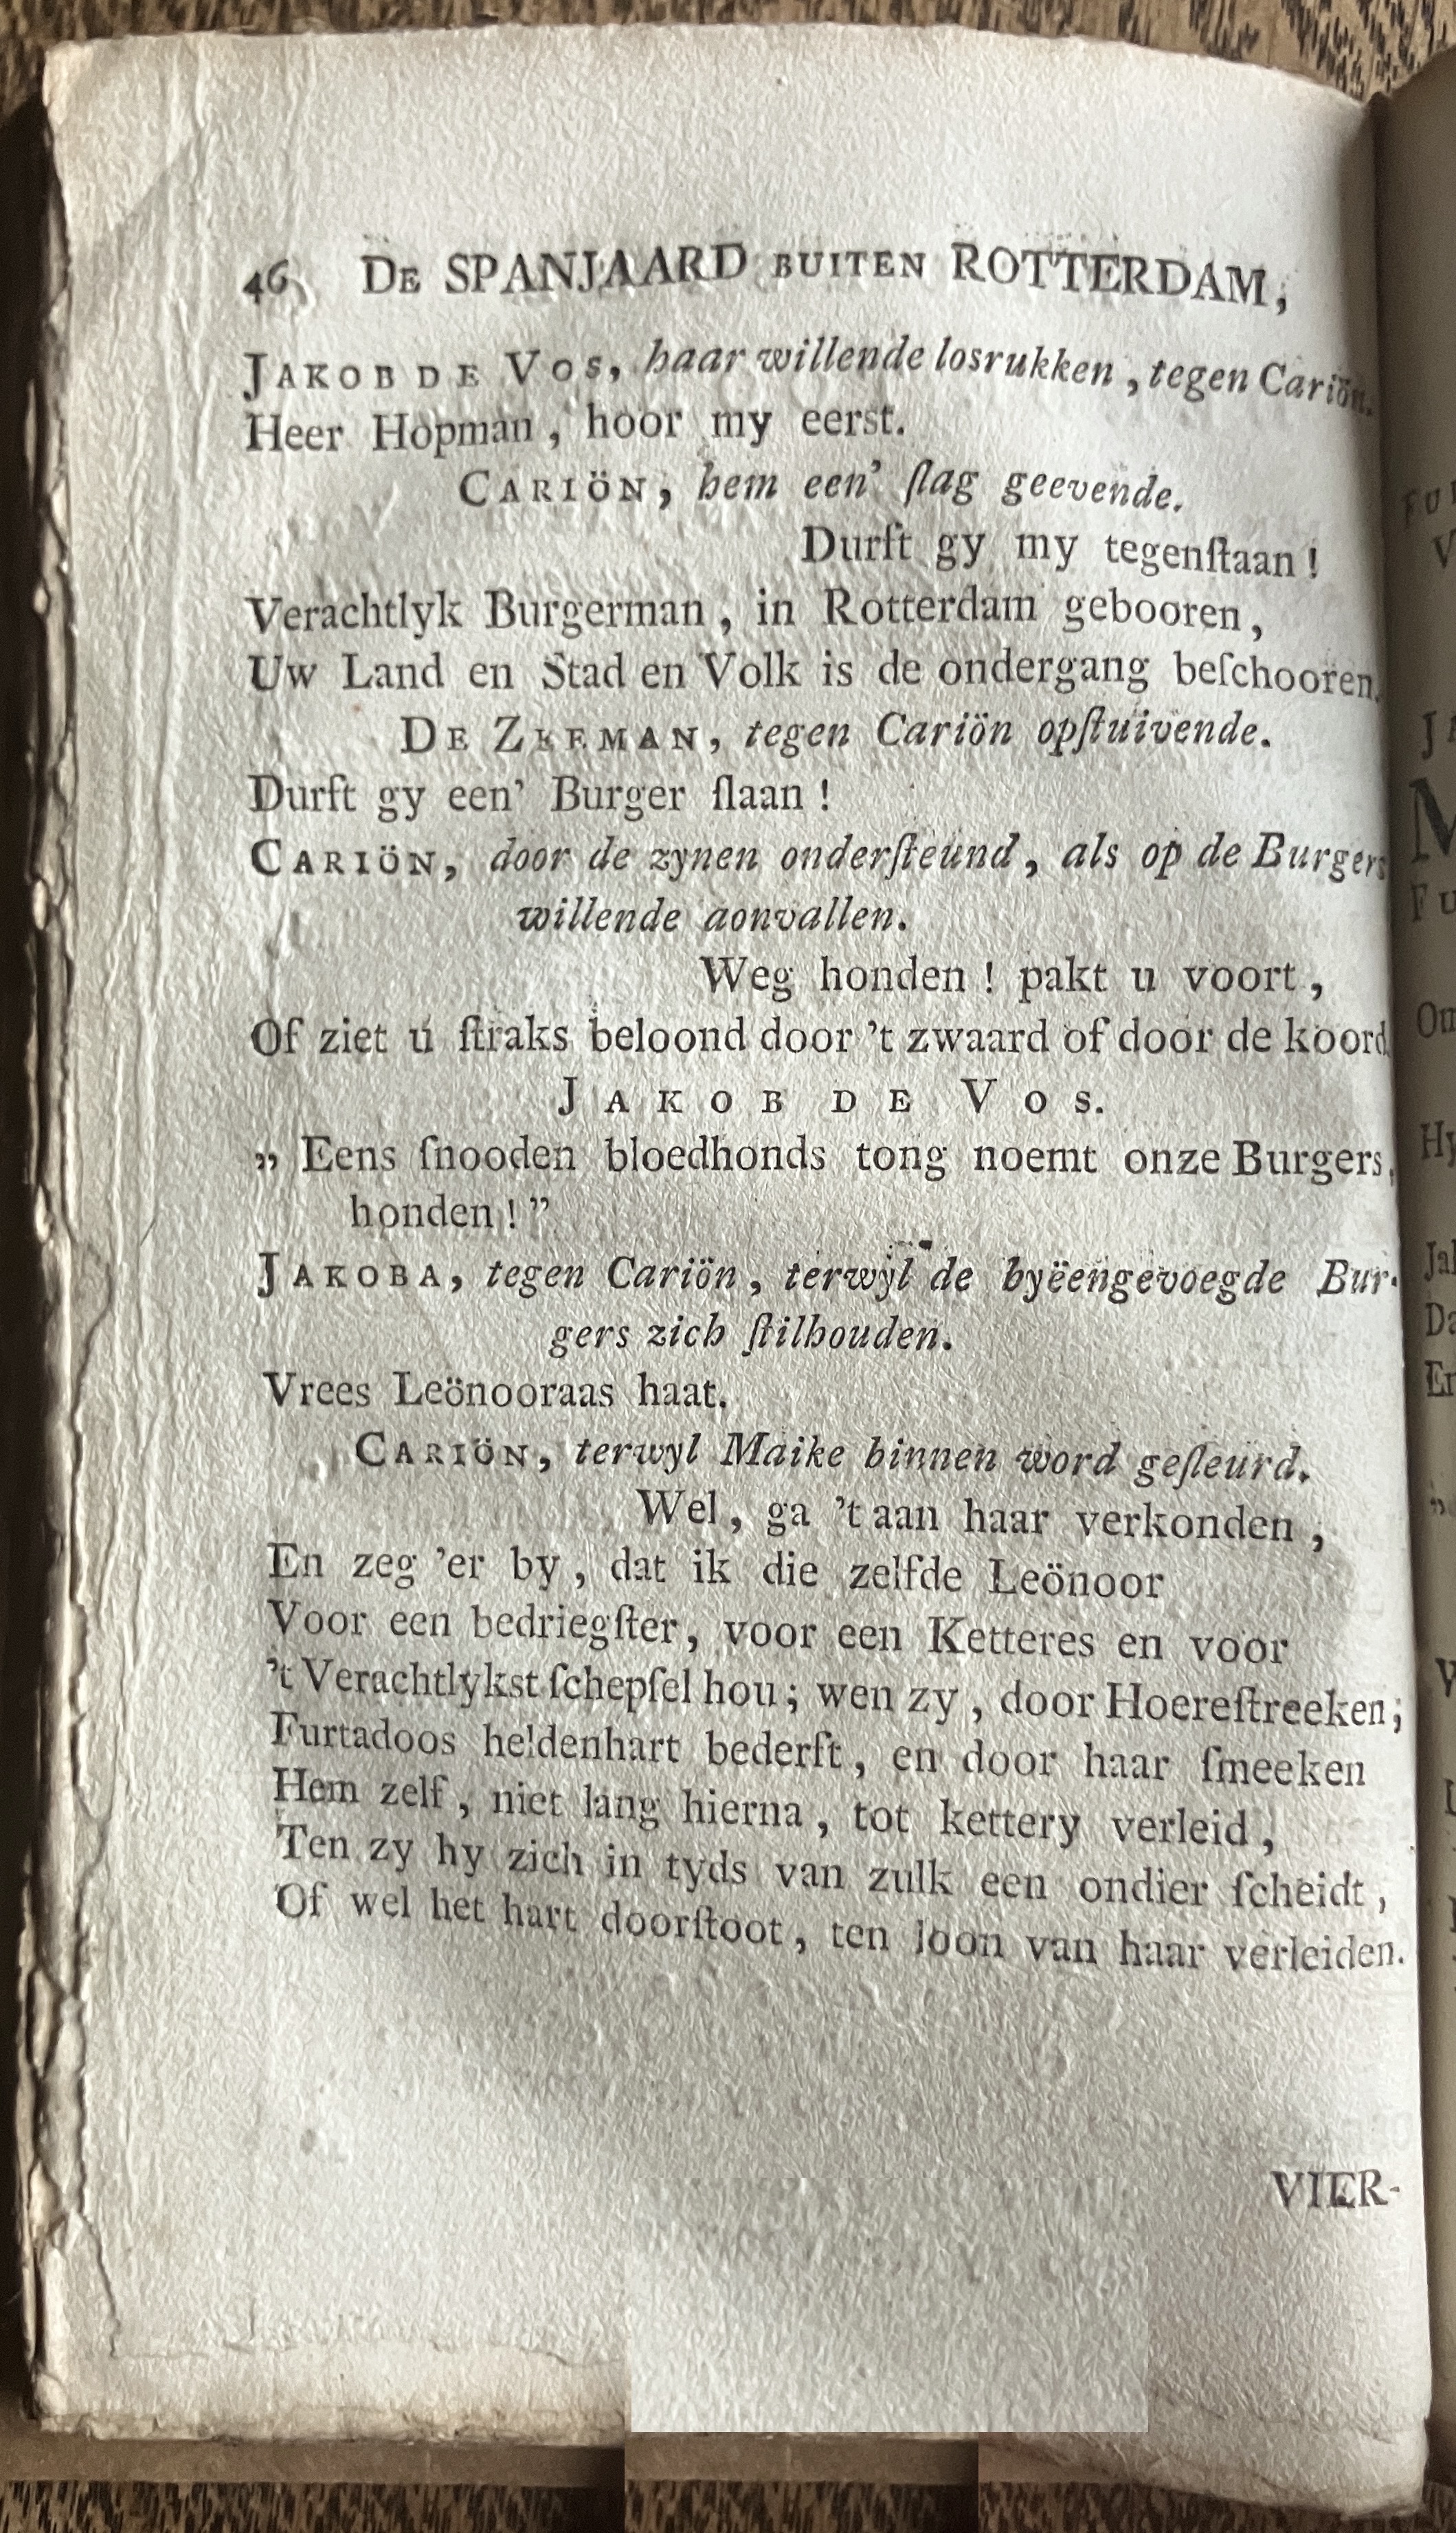 46 DE SPANJAARD BUITEN ROTTERDAM,
JAKOB DE VOS, haar willende losrukken, tegen Cariön.
Heer Hopman, hoor my eerst.
CARIÖN, hem een' ſlag geevende.
Durft gy my tegenſtaan!
Verachtlyk Burgerman, in Rotterdam gebooren,
Uw Land en Stad en Volk is de ondergang beſchooren.
DE ZEEMAN, tegen Cariön opſtuivende.
Durft gy een' Burger ſlaan!
CARIÖN, door de zynen onderſteund, als op de Burgers
willende aonvallen.
Weg honden! pakt u voort,
Of ziet u ſtraks beloond door 't zwaard of door de koord
JAKOB DE VOS.
„ Eens ſnooden bloedhonds tong noemt onze Burgers,
honden!”
JAKOBA, tegen Cariön, terwyl de byëengevoegde Bur-
gers zich ſtilhouden.
Vrees Leönooraas haat.
CARIÖN, terwyl Maike binnen word geſleurd.
Wel, ga 't aan haar verkonden,
En zeg 'er by, dat ik die zelfde Leönoor
Voor een bedriegſter, voor een Ketteres en voor
't Verachtlykst ſchepſel hou; wen zy, door Hoereſtreeken;
Furtadoos heldenhart bederft, en door haar ſmeeken
Hem zelf, niet lang hierna, tot kettery verleid,
Ten zy hy zich in tyds van zulk een ondier ſcheidt,
Of wel het hart doorſtoot, ten loon van haar verleiden.
VIER-